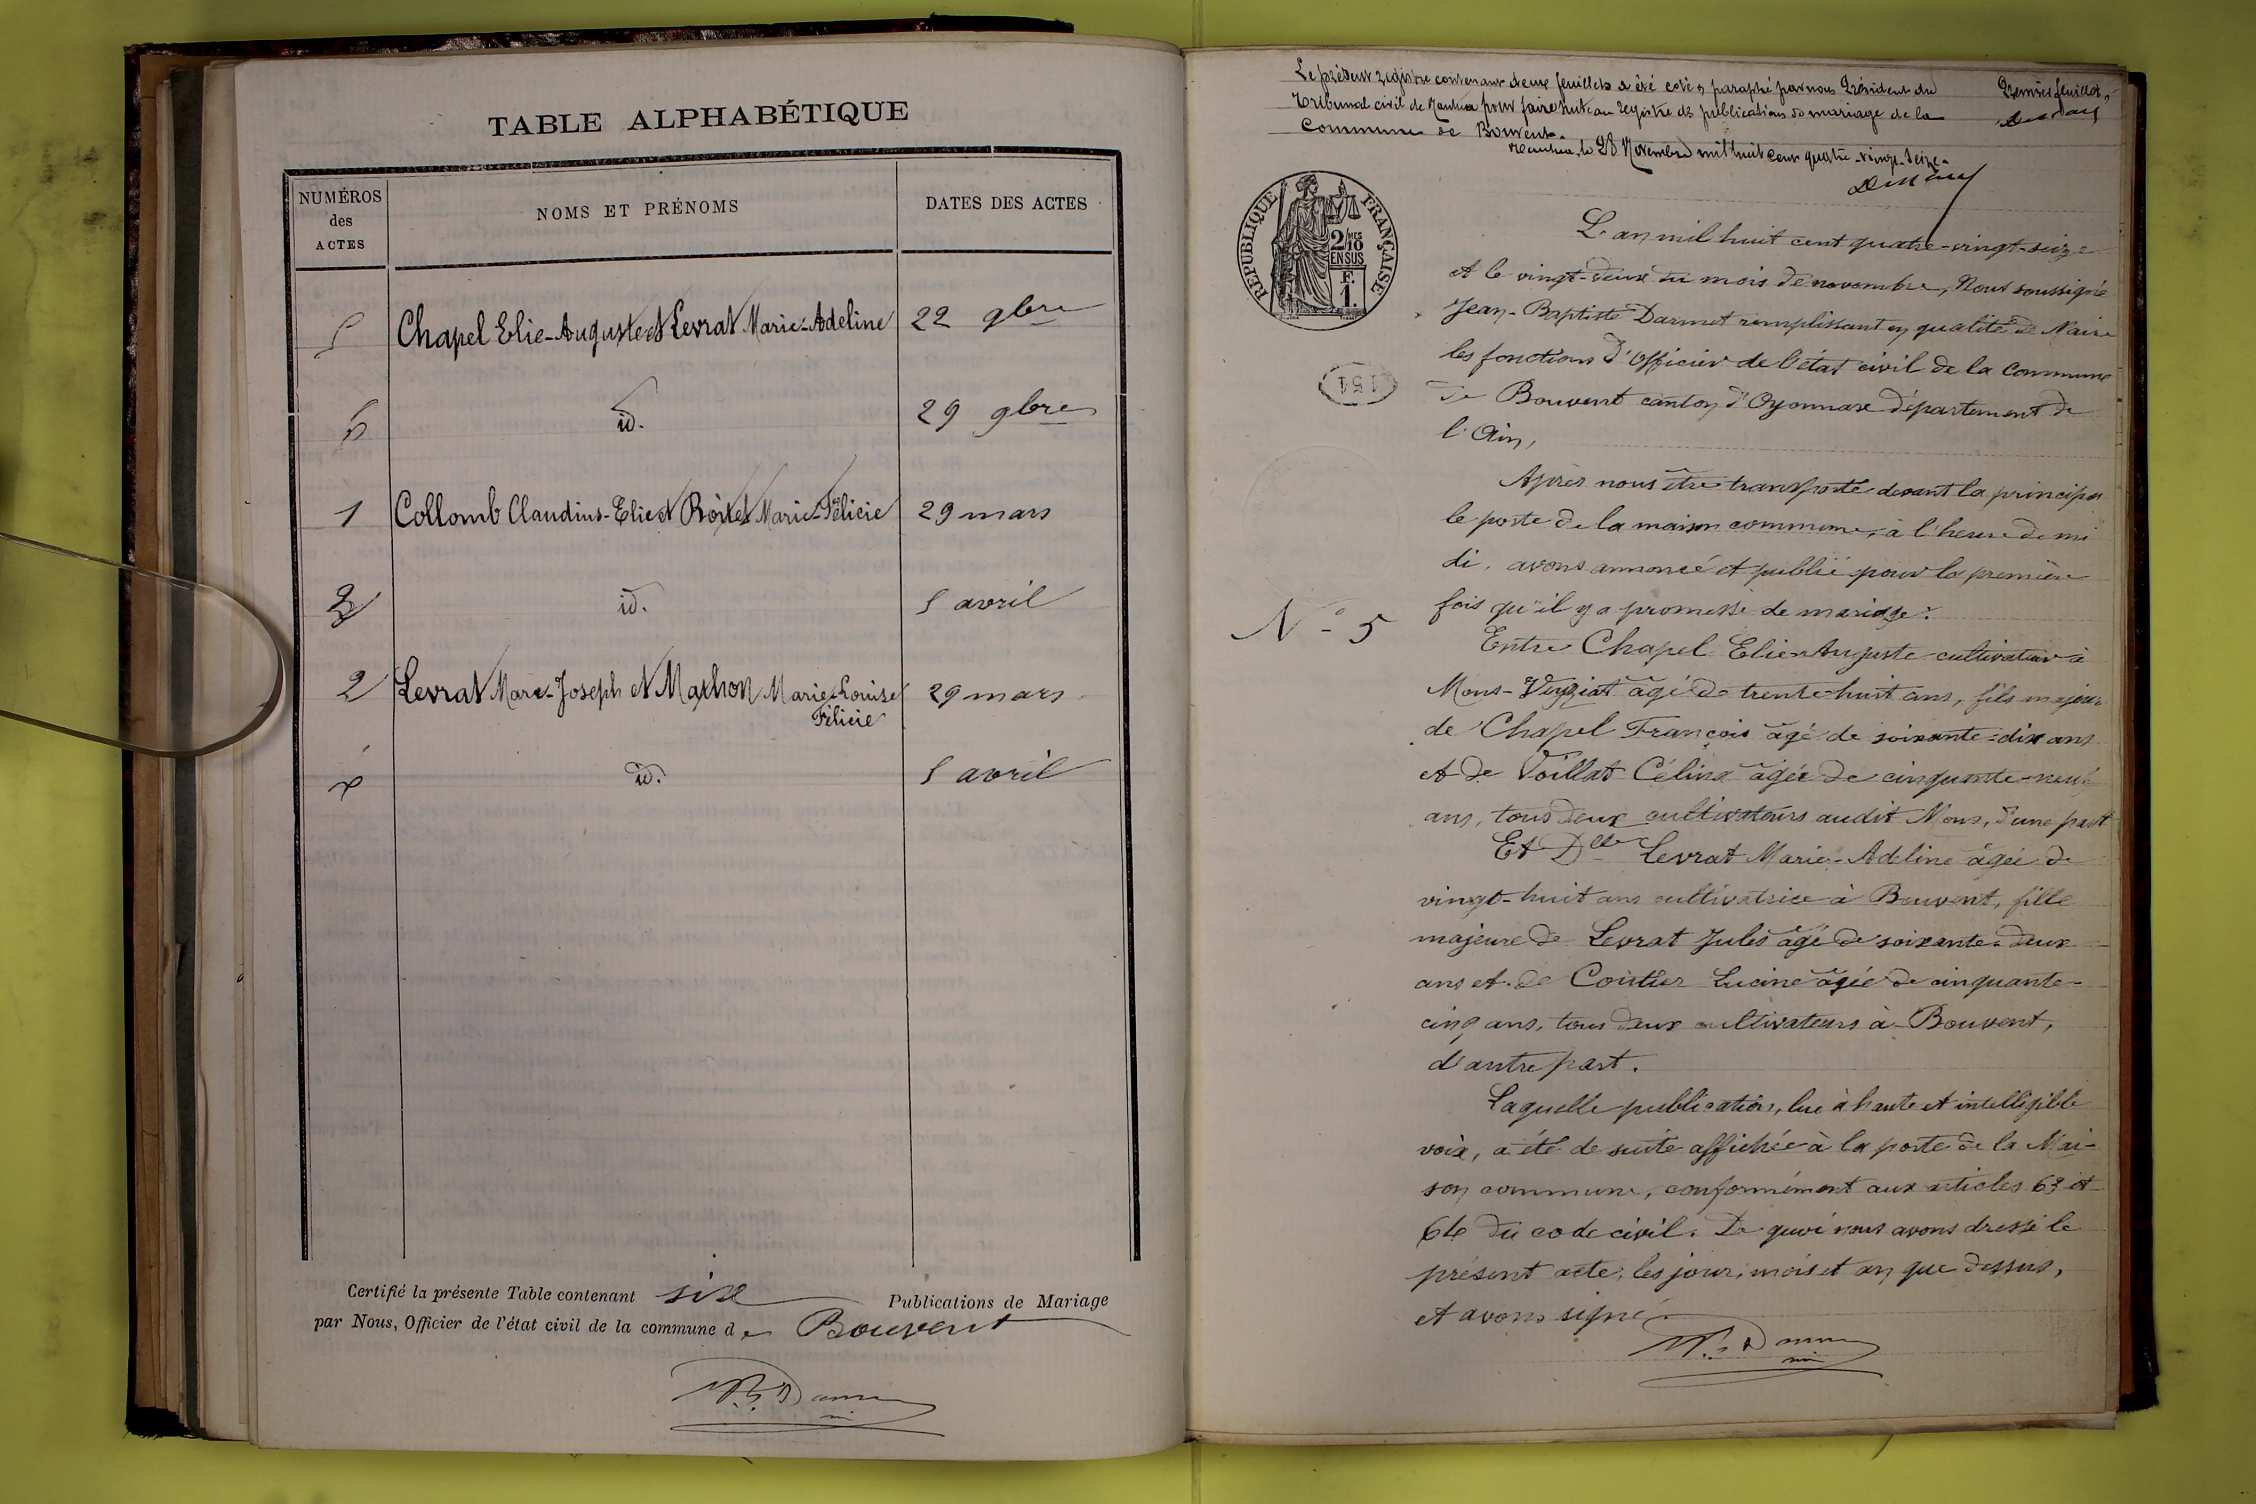 TABLE ALPHABÉTIQUE
NUMÉROS
des
ACTES
NOMS ET PRÉNOMS
DATES DES ACTES
5 Chapel Elie-Auguste et Levrat Marie-Adeline 22 9bre
6 id. 29 9bre
1 Collomb Claudius-Elie et Marie-Félicie 29 mars
3 id. 5 avril
2 Levrat Marc-Joseph et Mathon Marie-Louise 29 mars
Félicie
4 id. 5 avril
Certifié la présente Table contenant six Publications de Mariage
par Nous, Officier de l'état civil de la commune de Bouvent
Le présent registre contenant deux feuillets a été coté & paraphé par nous Président du
Tribunal civil de Nantua pour faire suite au registre de publications de mariage de la
Commune de Bouvent.
Nantua, le 28 Novembre mil huit cent quatre-vingt-seize.
Premier feuillet
RÉPUBLIQUE FRANÇAISE
2/10 MES
EN SUS
F.
1.
154
L'an mil huit cent quatre-vingt-seize
et le vingt-deux du mois de novembre, Nous soussigné
Jean-Baptiste Darmet remplissant en qualité de Maire
les fonctions d'Officier de l'état civil de la Commune
de Bouvent canton d'Oyonnax département de
l'Ain,
Après nous être transporté devant la principa
le porte de la maison commune, à l'heure de mi
di, avons annoncé et publié pour la première
fois qu'il y a promesse de mariage:
N° 5
Entre Chapel Elie Auguste cultivateur à
Mons-Veyziat âgé de trente-huit ans, fils majeur
de Chapel François âgé de soixante-dix ans
et de Voillat Célina âgée de cinquante-neuf
ans, tous deux cultivateurs audit Mons, d'une part
Et Dlle Levrat Marie-Adeline âgée de
vingt-huit ans cultivatrice à Bouvent, fille
majeure de Levrat Jules âgé de soixante-deux
ans et de Coutier Lucine âgée de cinquante-
cinq ans, tous deux cultivateurs à Bouvent,
d'autre part.
Laquelle publication, lue à haute et intelligible
voix, a été de suite affichée à la porte de la Mai-
son commune, conformément aux articles 63 et
64 du code civil. De quoi nous avons dressé le
présent acte, les jour, mois et an que dessus,
et avons signé